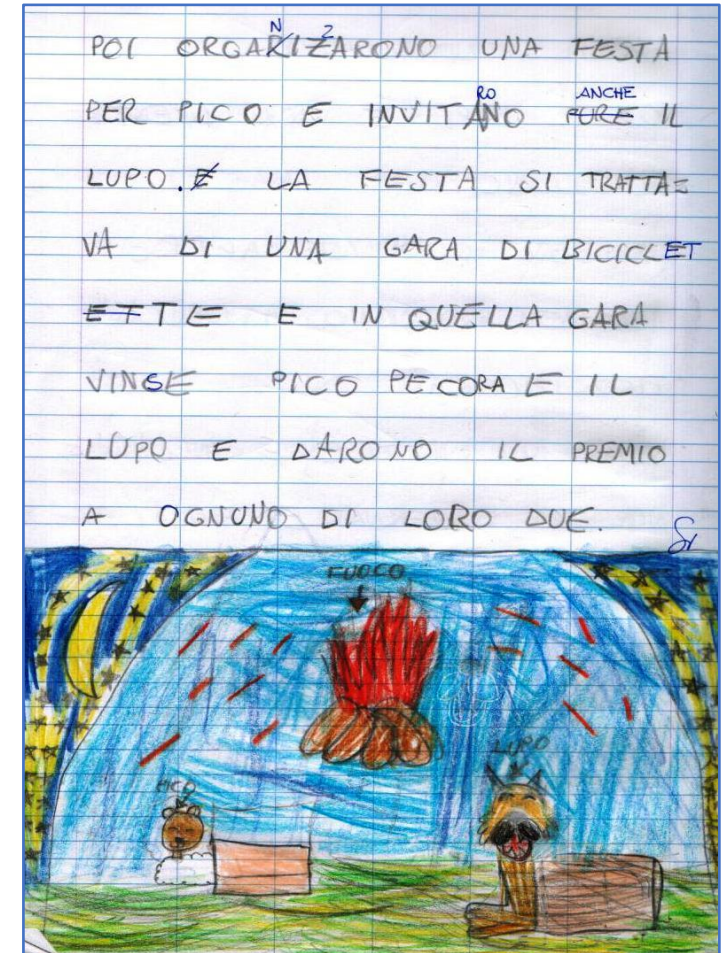 POI ORGANIZZARONO UNA FESTA
PER PICO E INVITARONO ANCHE IL
LUPO. LA FESTA SI TRATTA=
VA DI UNA GARA DI BICICLET
TE E IN QUELLA GARA
VINSE PICO PECORA E IL
LUPO E DARONO IL PREMIO
A OGNUNO DI LORO DUE.
FUOCO
LUPO
PICO